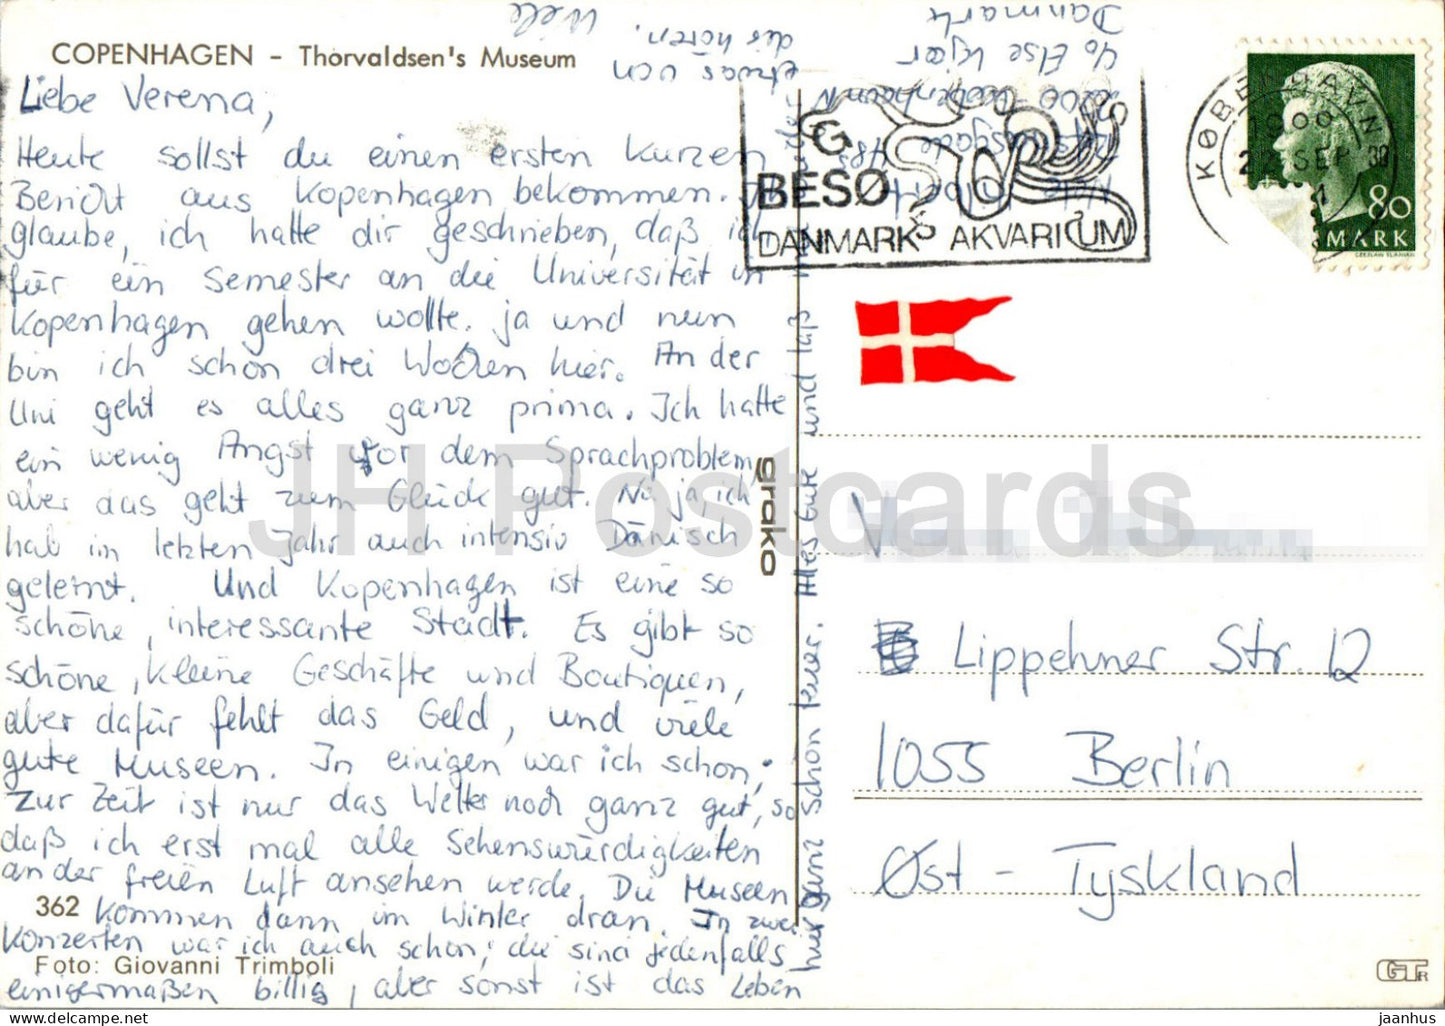 COPENHAGEN - Thorvaldsen's Museum
Liebe Verena,
Heute sollst du einen ersten kurzen
Bericht aus Kopenhagen bekommen. Ich
glaube, ich hatte dir geschrieben, daß ich
für ein Semester an die Universität in
Kopenhagen gehen wollte. ja und nun
bin ich schon drei Wochen hier. An der
Uni geht es alles ganz prima. Ich hatte
ein wenig Angst vor dem Sprachproblem,
aber das geht zum Glück gut. Na ja, ich
hab im letzten Jahr auch intensiv Dänisch
gelernt. Und Kopenhagen ist eine so
schöne, interessante Stadt. Es gibt so
schöne, kleine Geschäfte und Boutiquen,
aber dafür fehlt das Geld, und viele
gute Museen. In einigen war ich schon;
zur Zeit ist nur das Wetter noch ganz gut, so
daß ich erst mal alle Sehenswürdigkeiten
an der freien Luft ansehen werde. Die Museen
kommen dann im Winter dran. In zwei
Konzerten war ich auch schon; die sind jedenfalls
einigermaßen billig, aber sonst ist das Leben
hier ganz schön teuer. Alles Gute und laß
etwas von
dir hören.
Wiele
362
Foto: Giovanni Trimboli
grako
c/o Else Kjær
2200 København N
Danmark
BESØG
DANMARKS AKVARIUM
KØBENHAVN
22 SEP
80
MARK
CZESLAW SLANIA
Lippehner Str. 12
1055 Berlin
Øst - Tyskland
GTR
JH Postcards
jaanhus
https://jhpostcards.com